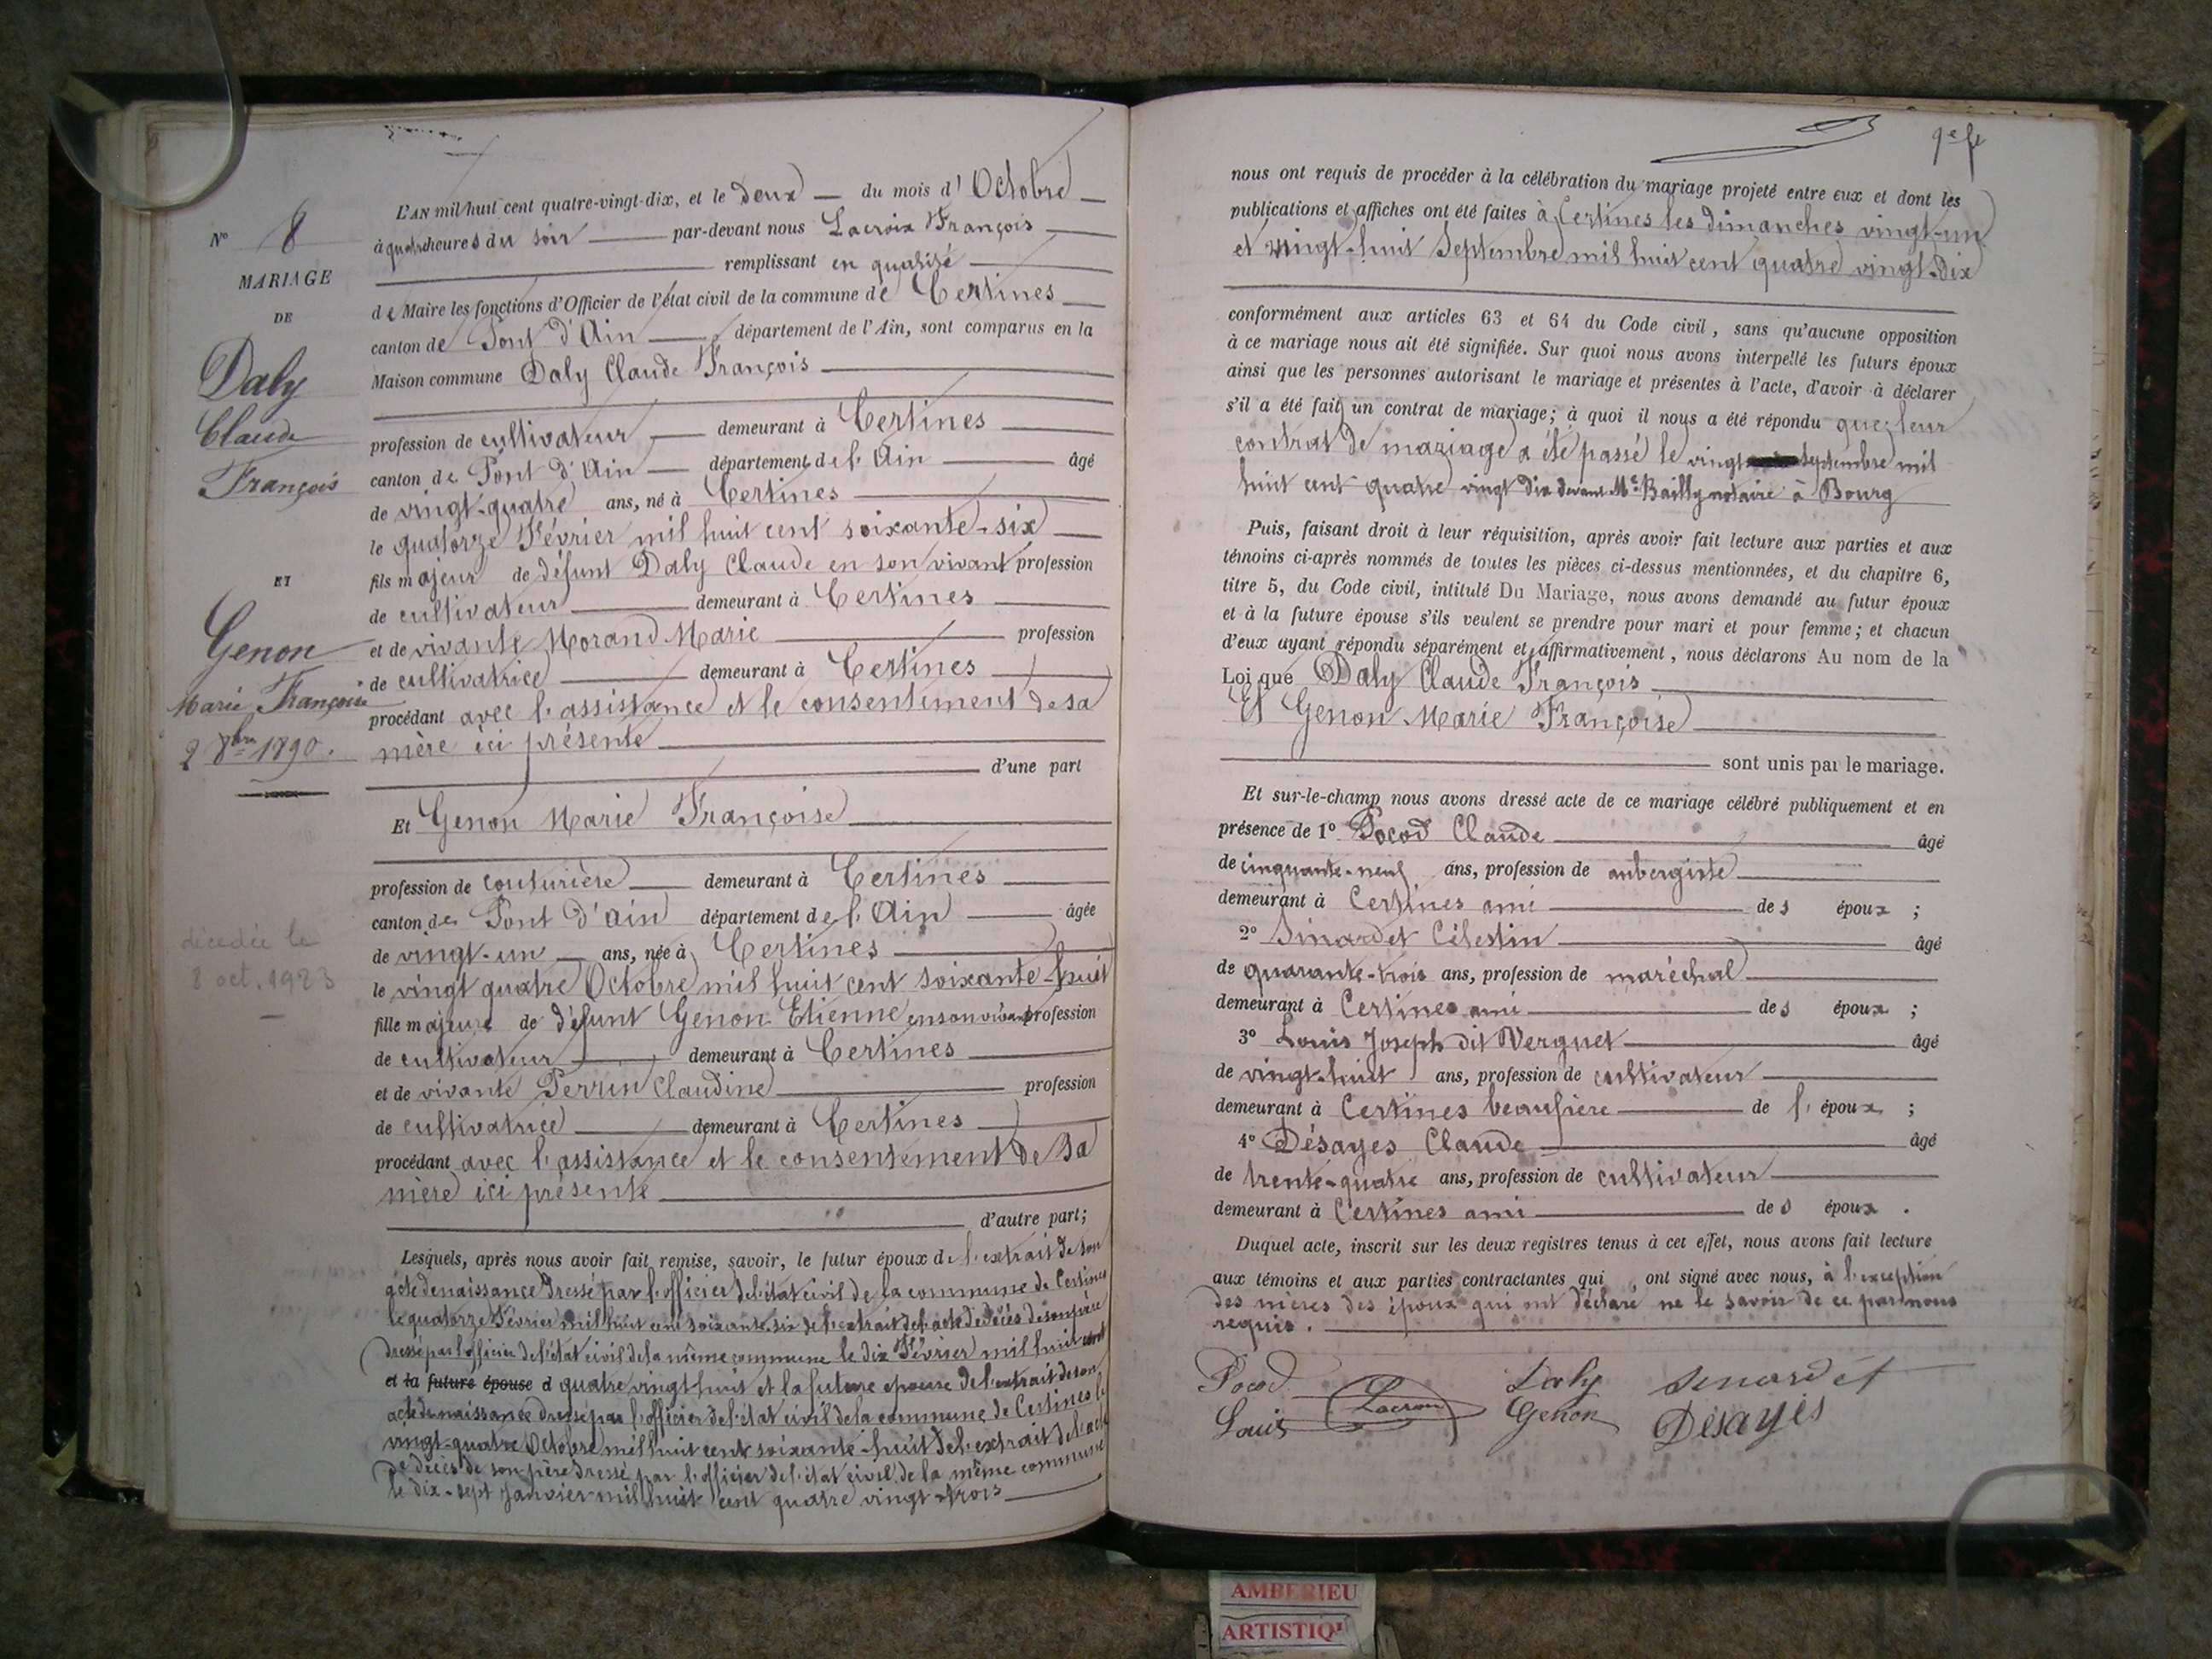 L'AN mil huit cent quatre-vingt-dix, et le deux du mois d'Octobre
à quatre heures du soir par-devant nous Lacroix François
remplissant en qualité
de Maire les fonctions d'Officier de l'état civil de la commune de Certines
canton de Pont d'Ain département de l'Ain, sont comparus en la
Maison commune Daly Claude François
profession de cultivateur demeurant à Certines
canton de Pont d'Ain département de l'Ain âgé
de vingt-quatre ans, né à Certines
le quatorze Février mil huit cent soixante-six
fils majeur de défunt Daly Claude en son vivant profession
de cultivateur demeurant à Certines
et de vivante Morand Marie profession
de cultivatrice demeurant à Certines
procédant avec l'assistance et le consentement de sa
mère ici présente
d'une part
Et Genon Marie Françoise
profession de couturière demeurant à Certines
canton de Pont d'Ain département de l'Ain âgée
de vingt-un ans, née à Certines
le vingt quatre Octobre mil huit cent soixante-huit
fille majeure de défunt Genon Etienne en son vivant profession
de cultivateur demeurant à Certines
et de vivante Perrin Claudine profession
de cultivatrice demeurant à Certines
procédant avec l'assistance et le consentement de sa
mère ici présente
d'autre part;
Lesquels, après nous avoir fait remise, savoir, le futur époux de l'extrait de son
acte de naissance dressé par l'officier de l'état civil de la commune de Certines
le quatorze Février mil huit cent soixante-six de l'extrait de l'acte de décès de son père
dressé par l'officier de l'état civil de la même commune le dix Février mil huit cent
et la future épouse d quatre vingt huit et la future épouse de l'extrait de son
acte de naissance dressé par l'officier de l'état civil de la commune de Certines le
vingt-quatre Octobre mil huit cent soixante-huit de l'extrait de l'acte
de décès de son père dressé par l'officier de l'état civil de la même commune
le dix-sept Janvier mil huit cent quatre vingt-trois
N° 8
MARIAGE
DE
Daly
Claude
François
ET
Genon
Marie Françoise
2 8bre 1890.
décédée le
8 oct. 1923
nous ont requis de procéder à la célébration du mariage projeté entre eux et dont les
publications et affiches ont été faites à Certines les dimanches vingt-un
et vingt-huit Septembre mil huit cent quatre vingt-dix
conformément aux articles 63 et 64 du Code civil, sans qu'aucune opposition
à ce mariage nous ait été signifiée. Sur quoi nous avons interpellé les futurs époux
ainsi que les personnes autorisant le mariage et présentes à l'acte, d'avoir à déclarer
s'il a été fait un contrat de mariage; à quoi il nous a été répondu que leur
contrat de mariage a été passé le vingt septembre mil
huit cent quatre vingt dix devant Me Bailly notaire à Bourg
Puis, faisant droit à leur réquisition, après avoir fait lecture aux parties et aux
témoins ci-après nommés de toutes les pièces ci-dessus mentionnées, et du chapitre 6,
titre 5, du Code civil, intitulé Du Mariage, nous avons demandé au futur époux
et à la future épouse s'ils veulent se prendre pour mari et pour femme; et chacun
d'eux ayant répondu séparément et affirmativement, nous déclarons Au nom de la
Loi que Daly Claude François
Et Genon Marie Françoise
sont unis par le mariage.
Et sur-le-champ nous avons dressé acte de ce mariage célébré publiquement et en
présence de 1° Pocod Claude âgé
de cinquante-neuf ans, profession de aubergiste
demeurant à Certines ami des époux ;
2° Sinardet Célestin âgé
de quarante-trois ans, profession de maréchal
demeurant à Certines ami des époux ;
3° Louis Joseph dit Verguet âgé
de vingt-huit ans, profession de cultivateur
demeurant à Certines beaufrère de l'époux ;
4° Désayes Claude âgé
de trente-quatre ans, profession de cultivateur
demeurant à Certines ami des époux .
Duquel acte, inscrit sur les deux registres tenus à cet effet, nous avons fait lecture
aux témoins et aux parties contractantes qui ont signé avec nous, à l'exception
des mères des époux qui ont déclaré ne le savoir de ce par nous
requis.
Pocod Lacroix Daly Senardet
Louis Genon Désayes
AMBERIEU
ARTISTIQ